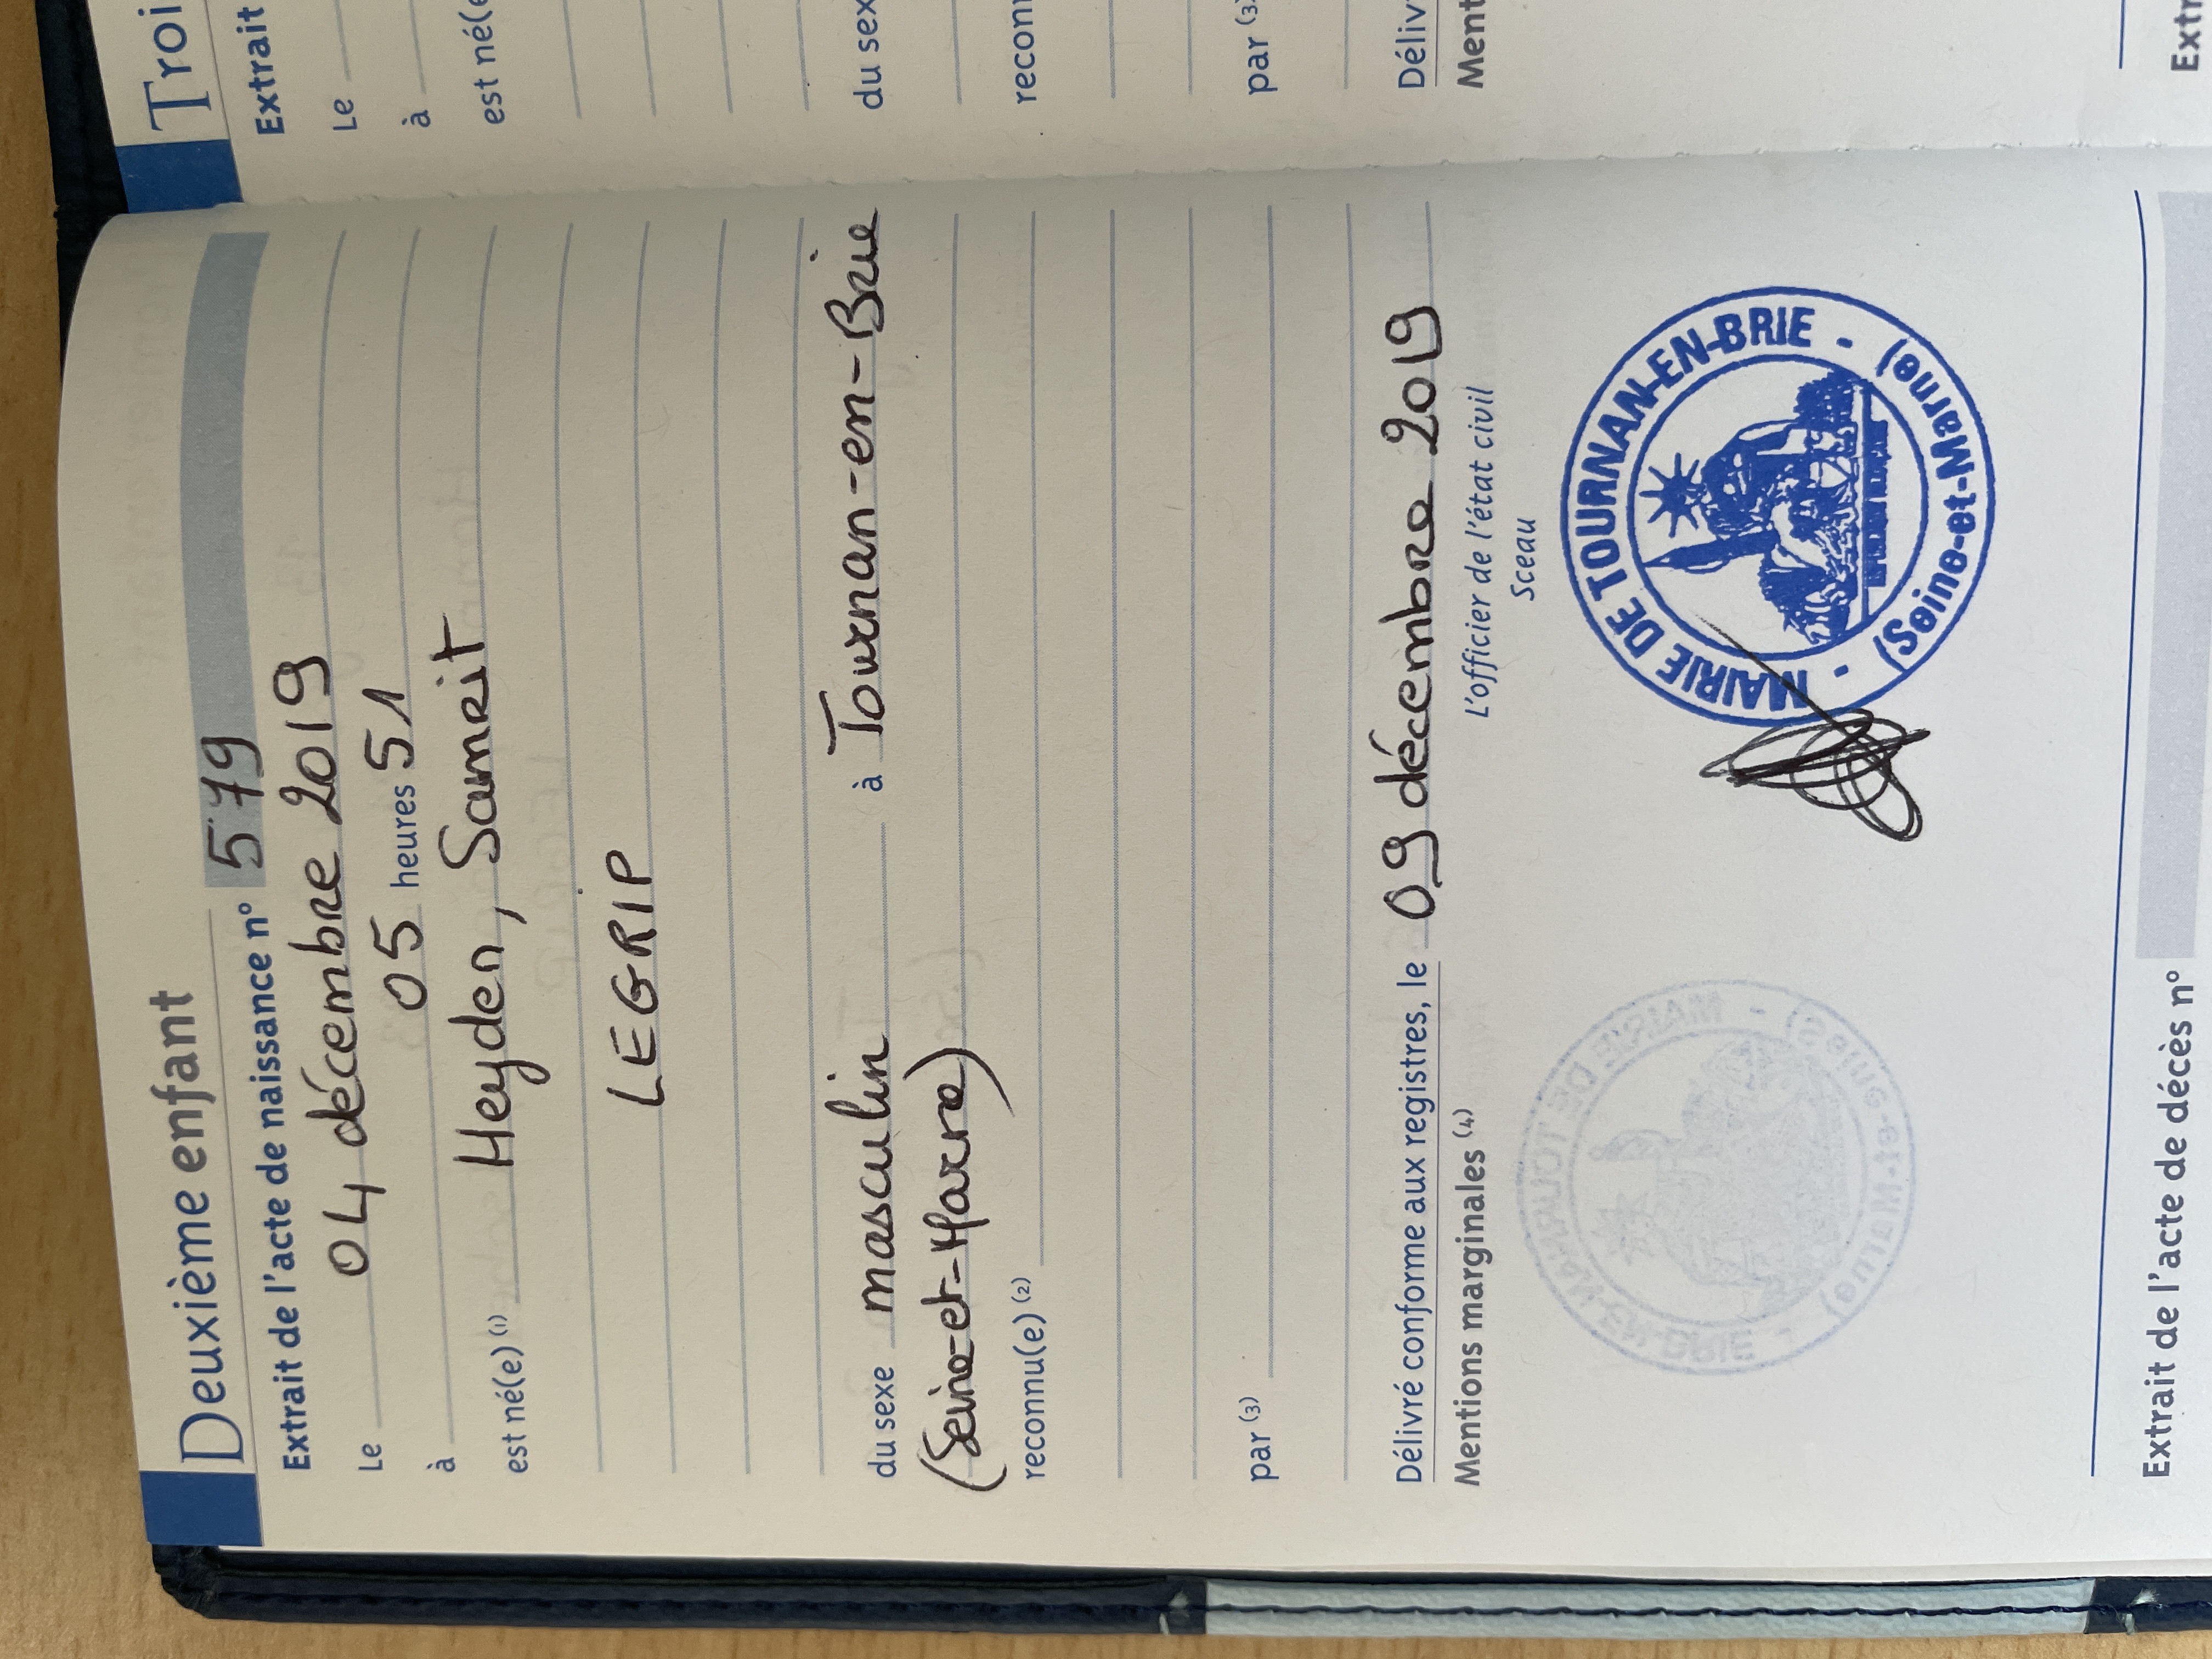 Deuxième enfant
Extrait de l'acte de naissance n° 579
Le 04 décembre 2019
à 05 heures 51
est né(e) (1) Heyden, Samrit
LEGRIP
du sexe masculin à Tournan-en-Brie
(Seine-et-Marne)
reconnu(e) (2)
par (3)
Délivré conforme aux registres, le 09 décembre 2019
Mentions marginales (4)
L'officier de l'état civil
Sceau
MAIRIE DE TOURNAN-EN-BRIE -
(Seine-et-Marne) -
Extrait de l'acte de décès n°
Troi
Extrait
Le
à
est né(e
du sex
reconn
par (3)
Déliv
Ment
Extr